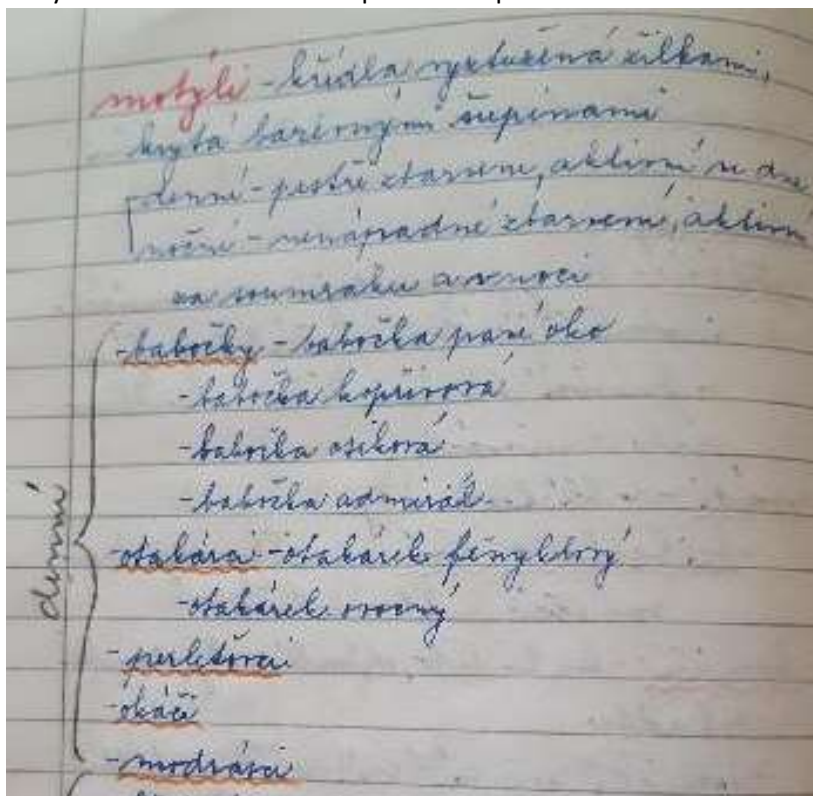 motýli - křídla vyztužená žilkami,
krytá barevnými šupinami
denní - pestré zbarvení, aktivní ve dne
noční - nenápadné zbarvení, aktivní
za soumraku a v noci
- babočky - babočka paví oko
- babočka kopřivová
- babočka osiková
- babočka admirál
- otakárci - otakárek fenyklový
- otakárek ovocný
- perleťovci
- okáči
- modrásci
denní